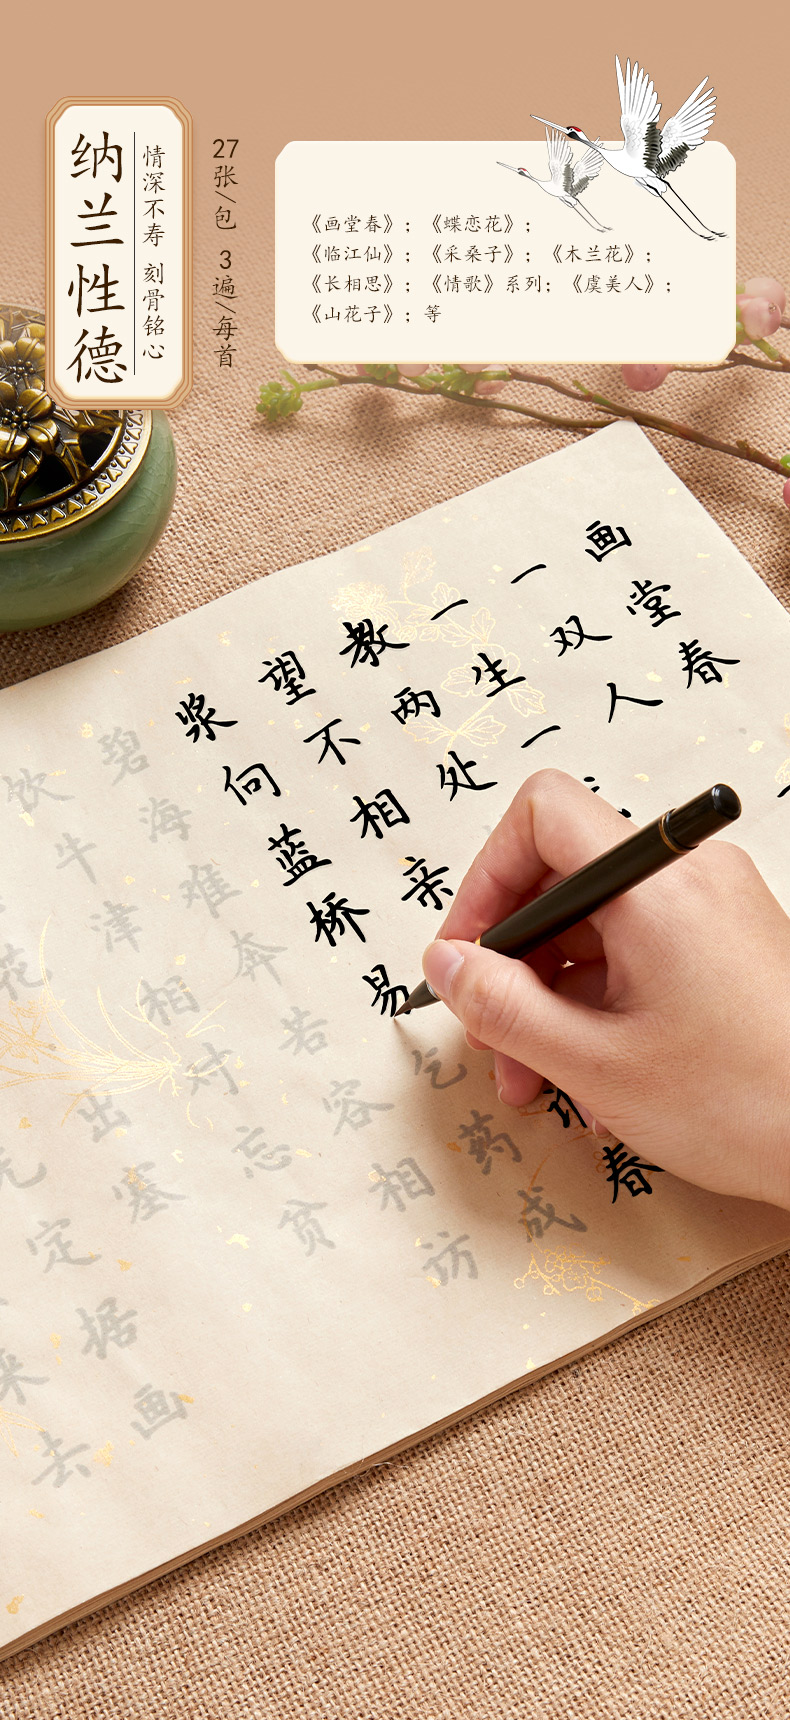 纳兰性德
情深不寿 刻骨铭心
27张/包 3遍/每首
《画堂春》；《蝶恋花》；
《临江仙》；《采桑子》；《木兰花》；
《长相思》；《情歌》系列；《虞美人》；
《山花子》；等
画堂春
一双人
一生一
教两处
望不相亲谁春
浆向蓝桥易乞药成
碧海难奔若容相访
饮牛津相对忘贫
花出塞
无定据画
来去